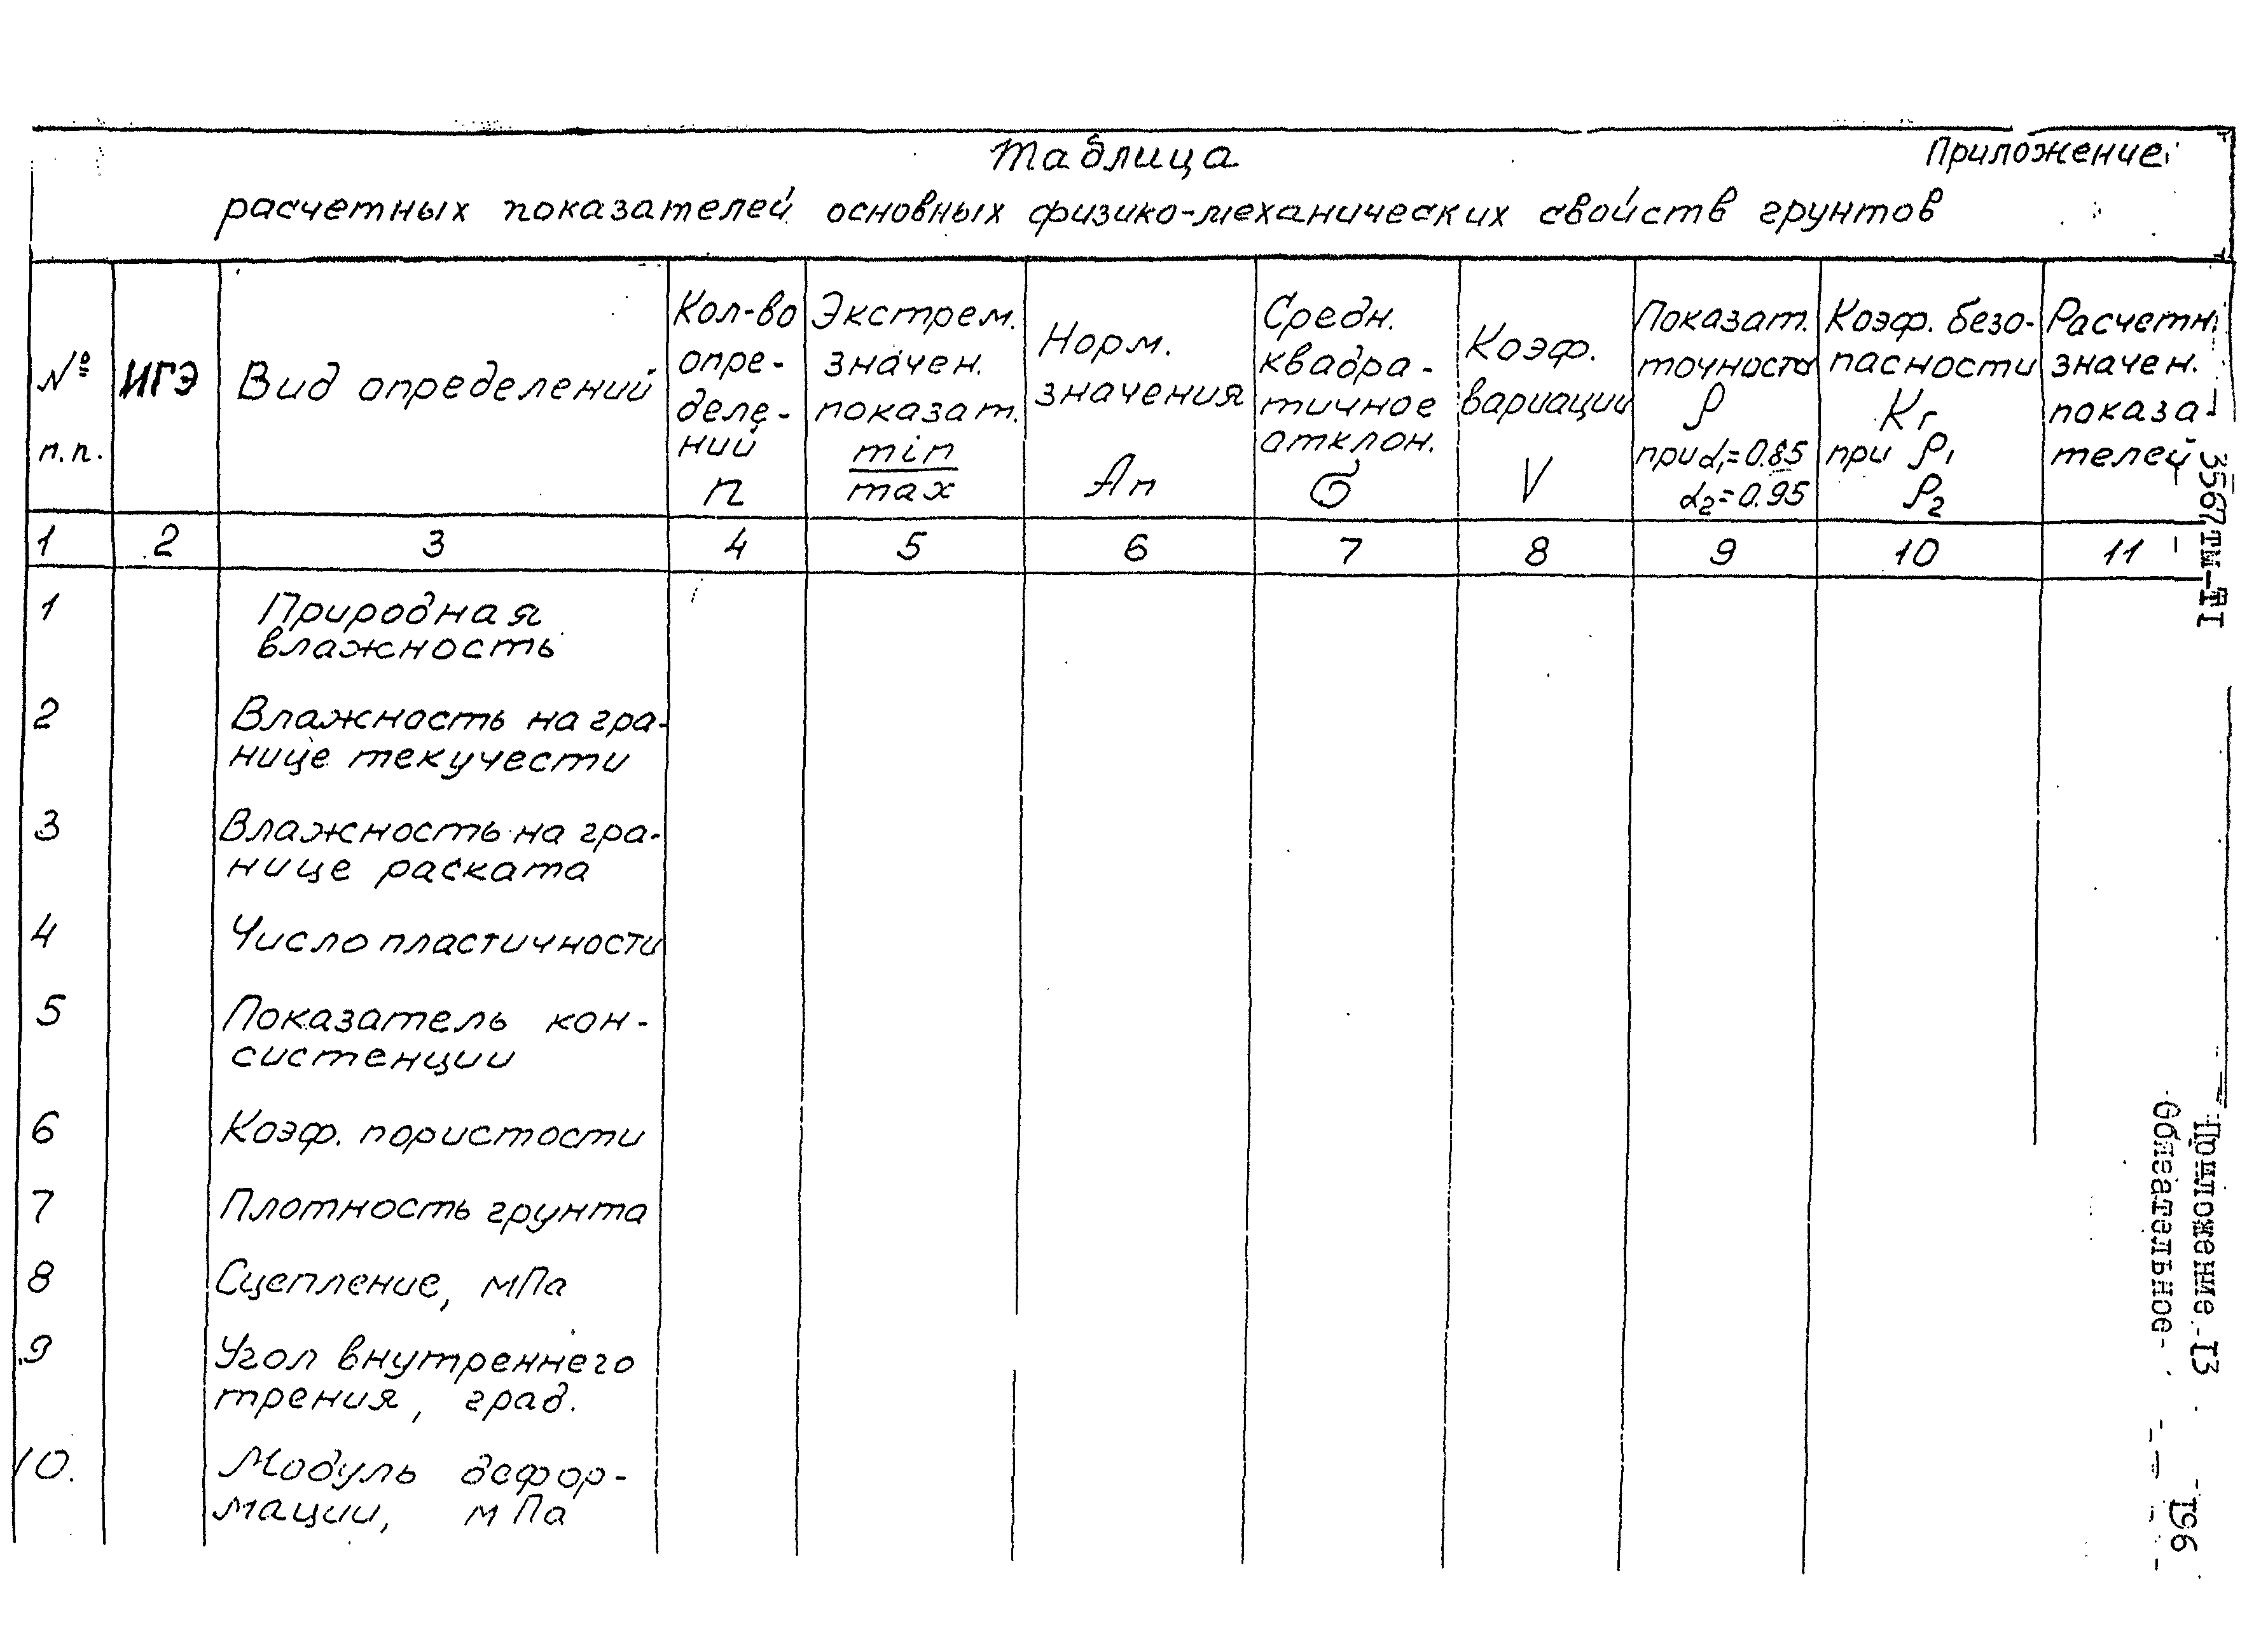 Таблица
Приложение
расчетных показателей основных физико-механических свойств грунтов
№
п.п.
ИГЭ
Вид определений
Кол-во
опре-
деле-
ний
n
Экстрем.
значен.
показат.
min
max
Норм.
значения
Aп
Средн.
квадра-
тичное
отклон.
σ
Коэф.
вариации
V
Показат.
точности
ρ
при α₁=0.85
α₂=0.95
Коэф. безо-
пасности
Kг
при ρ₁
ρ₂
Расчетн.
значен.
показа-
телей
1 2 3 4 5 6 7 8 9 10 11
1 Природная
влажность
2 Влажность на гра-
нице текучести
3 Влажность на гра-
нице раската
4 Число пластичности
5 Показатель кон-
систенции
6 Коэф. пористости
7 Плотность грунта
8 Сцепление, мПа
9 Угол внутреннего
трения, град.
10. Модуль дефор-
мации, мПа
3567тм-TI
Приложение I3
Обязательное
I96